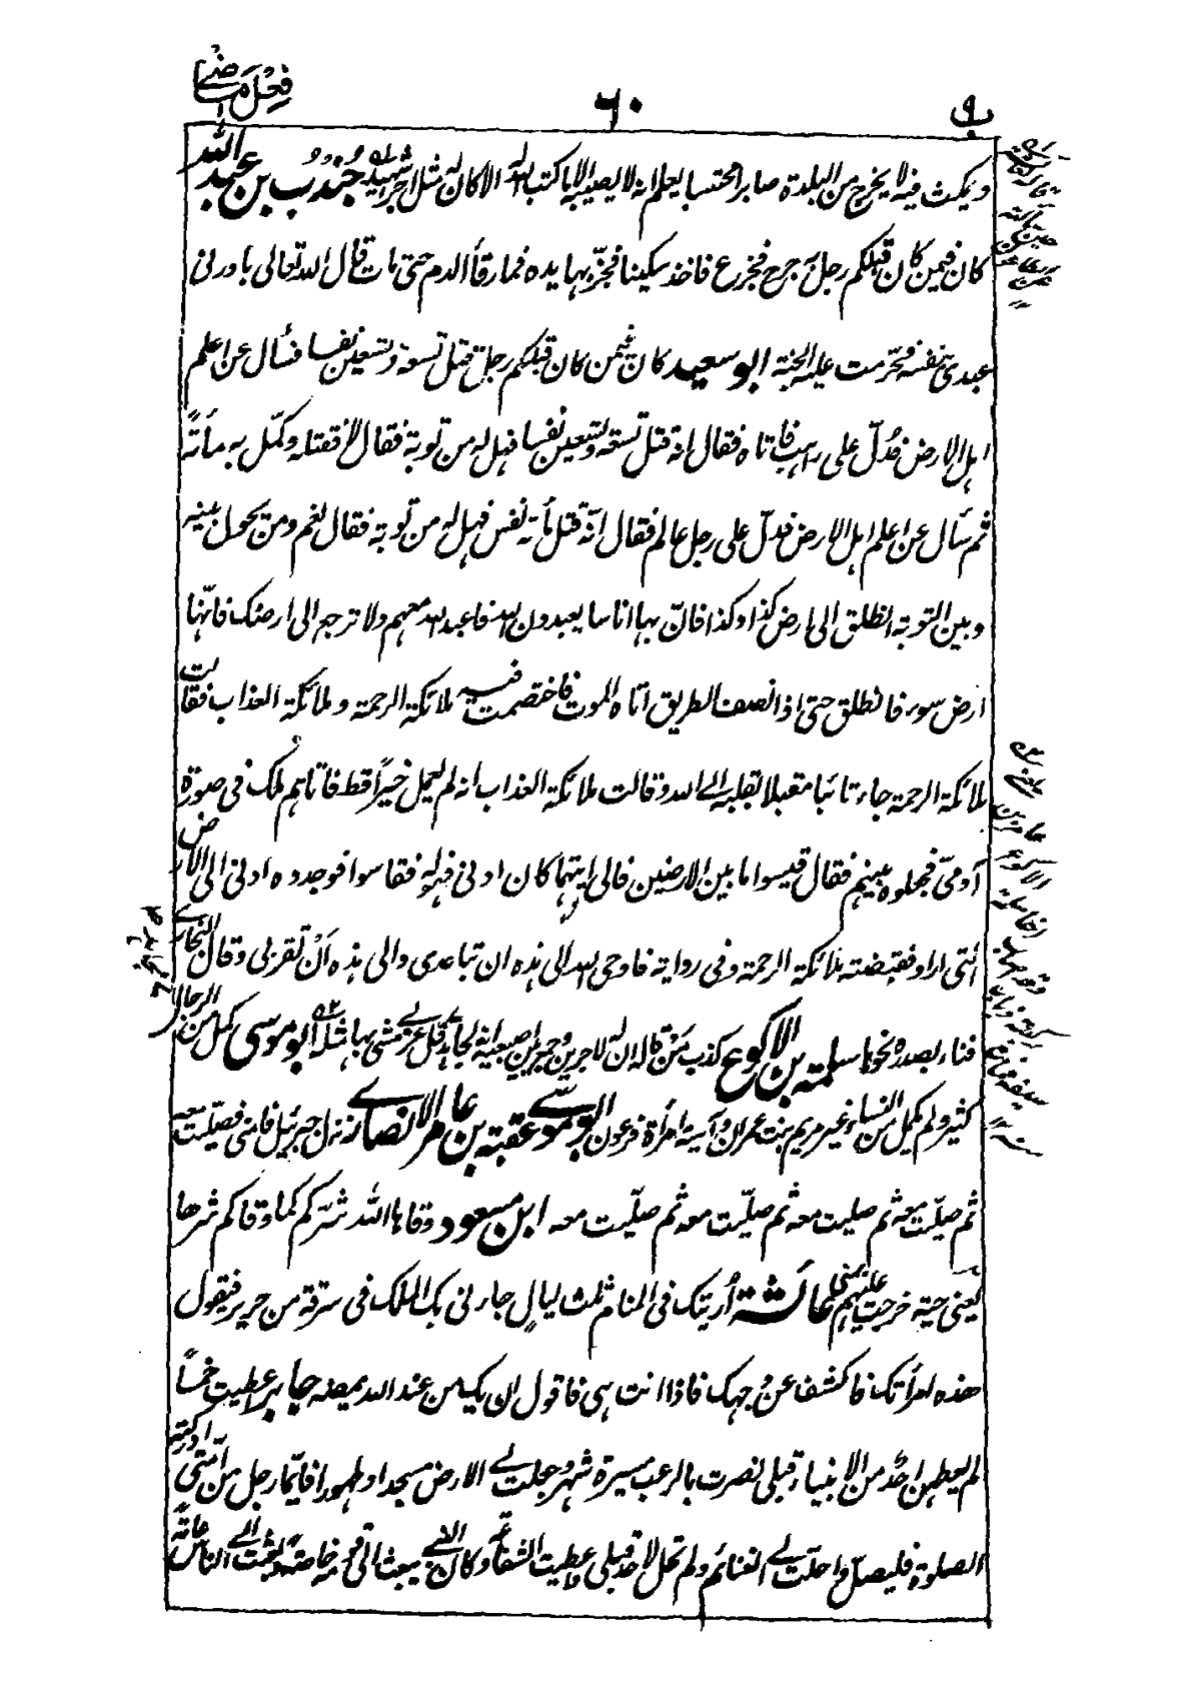 ب ٩
٦٠
فعل مضے
ويمكث فيه لا يخرج من البلدة صابرا محتسبا يعلم انه لا يصيبه الا ما كتب الله له الا كان له مثل اجر شهيد جندب بن عبد الله
كان فيمن كان قبلكم رجل به جرح فجزع فاخذ سكينا فحزّ بها يده فما رقأ الدم حتى مات قال الله تعالى بادرنى
عبدى بنفسه فحرمت عليه الجنة ابو سعيد كان فيمن كان قبلكم رجل قتل تسعة وتسعين نفسا فسأل عن اعلم
اهل الارض فدلّ على راهب فاتاه فقال انه قتل تسعة وتسعين نفسا فهل له من توبة فقال لا فقتله وكمّل به مأتة
ثم سأل عن اعلم اهل الارض فدلّ على رجل عالم فقال انّه قتل مأتة نفس فهل له من توبة فقال نعم ومن يحول بينه
وبين التوبة انطلق الى ارض كذا وكذا فانّ بها اناسا يعبدون الله فاعبد الله معهم ولا ترجع الى ارضك فانّها
ارض سوء فانطلق حتى اذا نصف الطريق اتاه الموت فاختصمت فيه ملائكة الرحمة وملائكة العذاب فقالت
ملائكة الرحمة جاء تائبا مقبلا بقلبه الى الله وقالت ملائكة العذاب انه لم يعمل خيراً قط فاتاهم ملك فى صورة
آدمىّ فجعلوه بينهم فقال قيسوا ما بين الارضين فالى ايتهما كان ادنى فهو له فقاسوا فوجدوه ادنى الى الارض
التى اراد فقبضته ملائكة الرحمة وفى رواية فاوحى الله الى هذه ان تباعدى والى هذه اَنْ تقربى وقال النجارے
فناء بصدره نحوها سلمة بن الاكوع كذب مَنْ قاله ان له لاجرين وجمع بين اصبعيه انه لجاهد مجاهد قل عربى مشى بها مثله ابو موسى كمل من الرجال
كثير ولم يكمل من النساء غير مريم بنت عمران وآسية امرأة فرعون ابو مسعود عقبة بن عامر الانصارے نزل جبرئيل فامنى فصليت معه
ثم صليت معه ثم صليت معه ثم صلّيت معه ثم صلّيت معه ابن مسعود وقاها الله شرّكم كما وقاكم شرها
يعنى حية خرجت عليهم بمنى عائشة اُريتك فى المنام ثلث ليالٍ جاءنى بك الملك فى سرقة من حرير فيقول
هذه امرأتك فاكشف عن وجهك فاذا انت هى فاقول ان يك من عند الله يمضه جابر اعطيت خمساً
لم يعطهن احدٌ من الانبياء قبلى نصرت بالرعب مسيرة شهر وجعلت لے الارض مسجدا وطهورا فايّما رجل من امّتى ادركته
الصلوة فليصلّ واحلّت لے الغنائم ولم تحل لاحد قبلى واعطيت الشفاعة وكان النبے يبعث الى قومه خاصّةً وبعثت الى الناس عامّةً